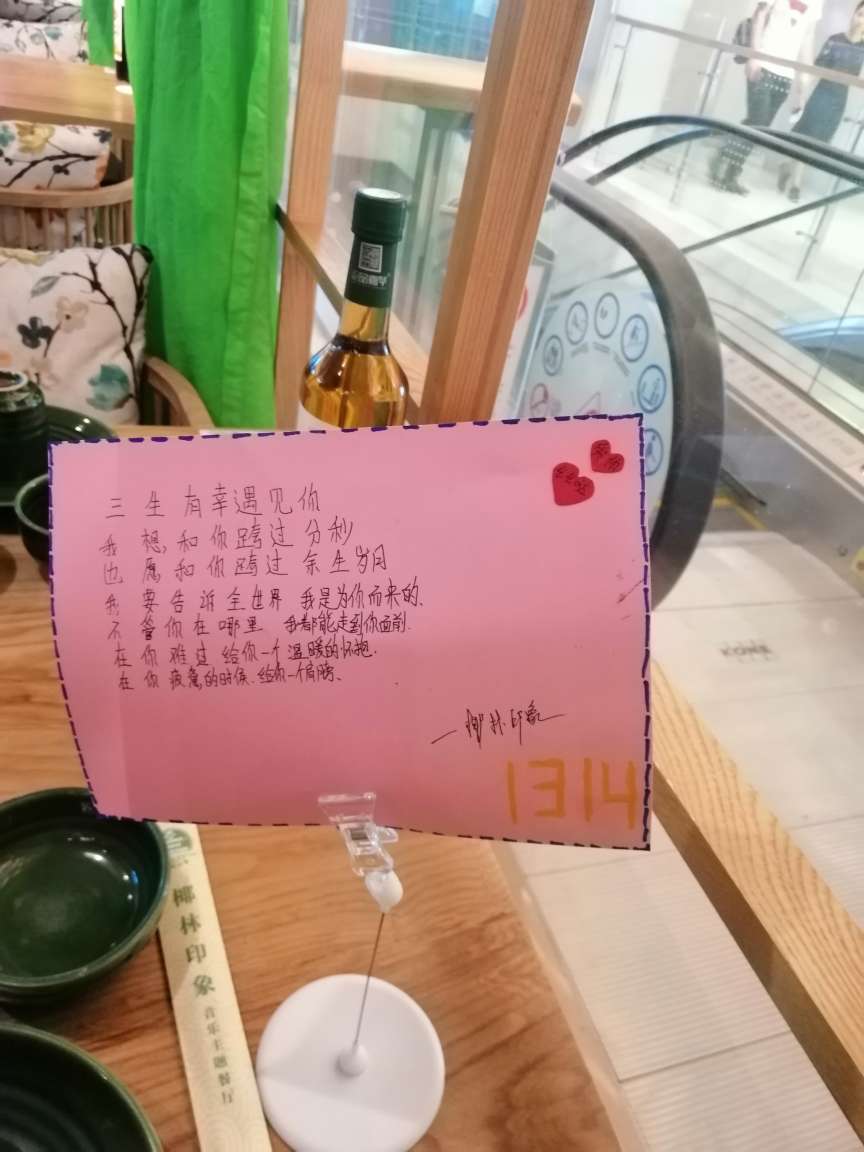 三生有幸遇见你
我想和你跨过分秒
也愿和你跨过余生岁月
我要告诉全世界 我是为你而来的、
不管你在哪里 我都能走到你面前.
在你难过给你一个温暖的怀抱.
在你疲惫的时候.给你一个肩膀、
—椰林印象
1314
椰林印象 音乐主题餐厅
KONE